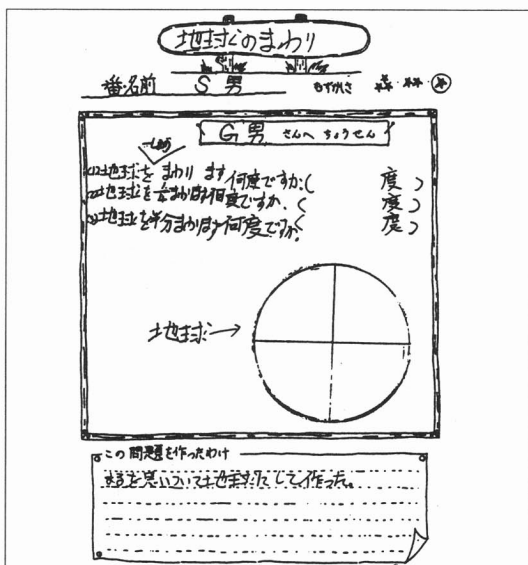 地球のまわり
番名前 S男 むずかしさ ☆ ☆☆ ☆
G男 さんへ ちょうせん
一しゅう
(1)地球を まわり ます何度ですか。( 度)
(2)地球を まわります何度ですか。( 度)
(3)地球を半分まわります何度ですか。( 度)
地球→
この問題を作ったわけ
思いついて地球にして作った。